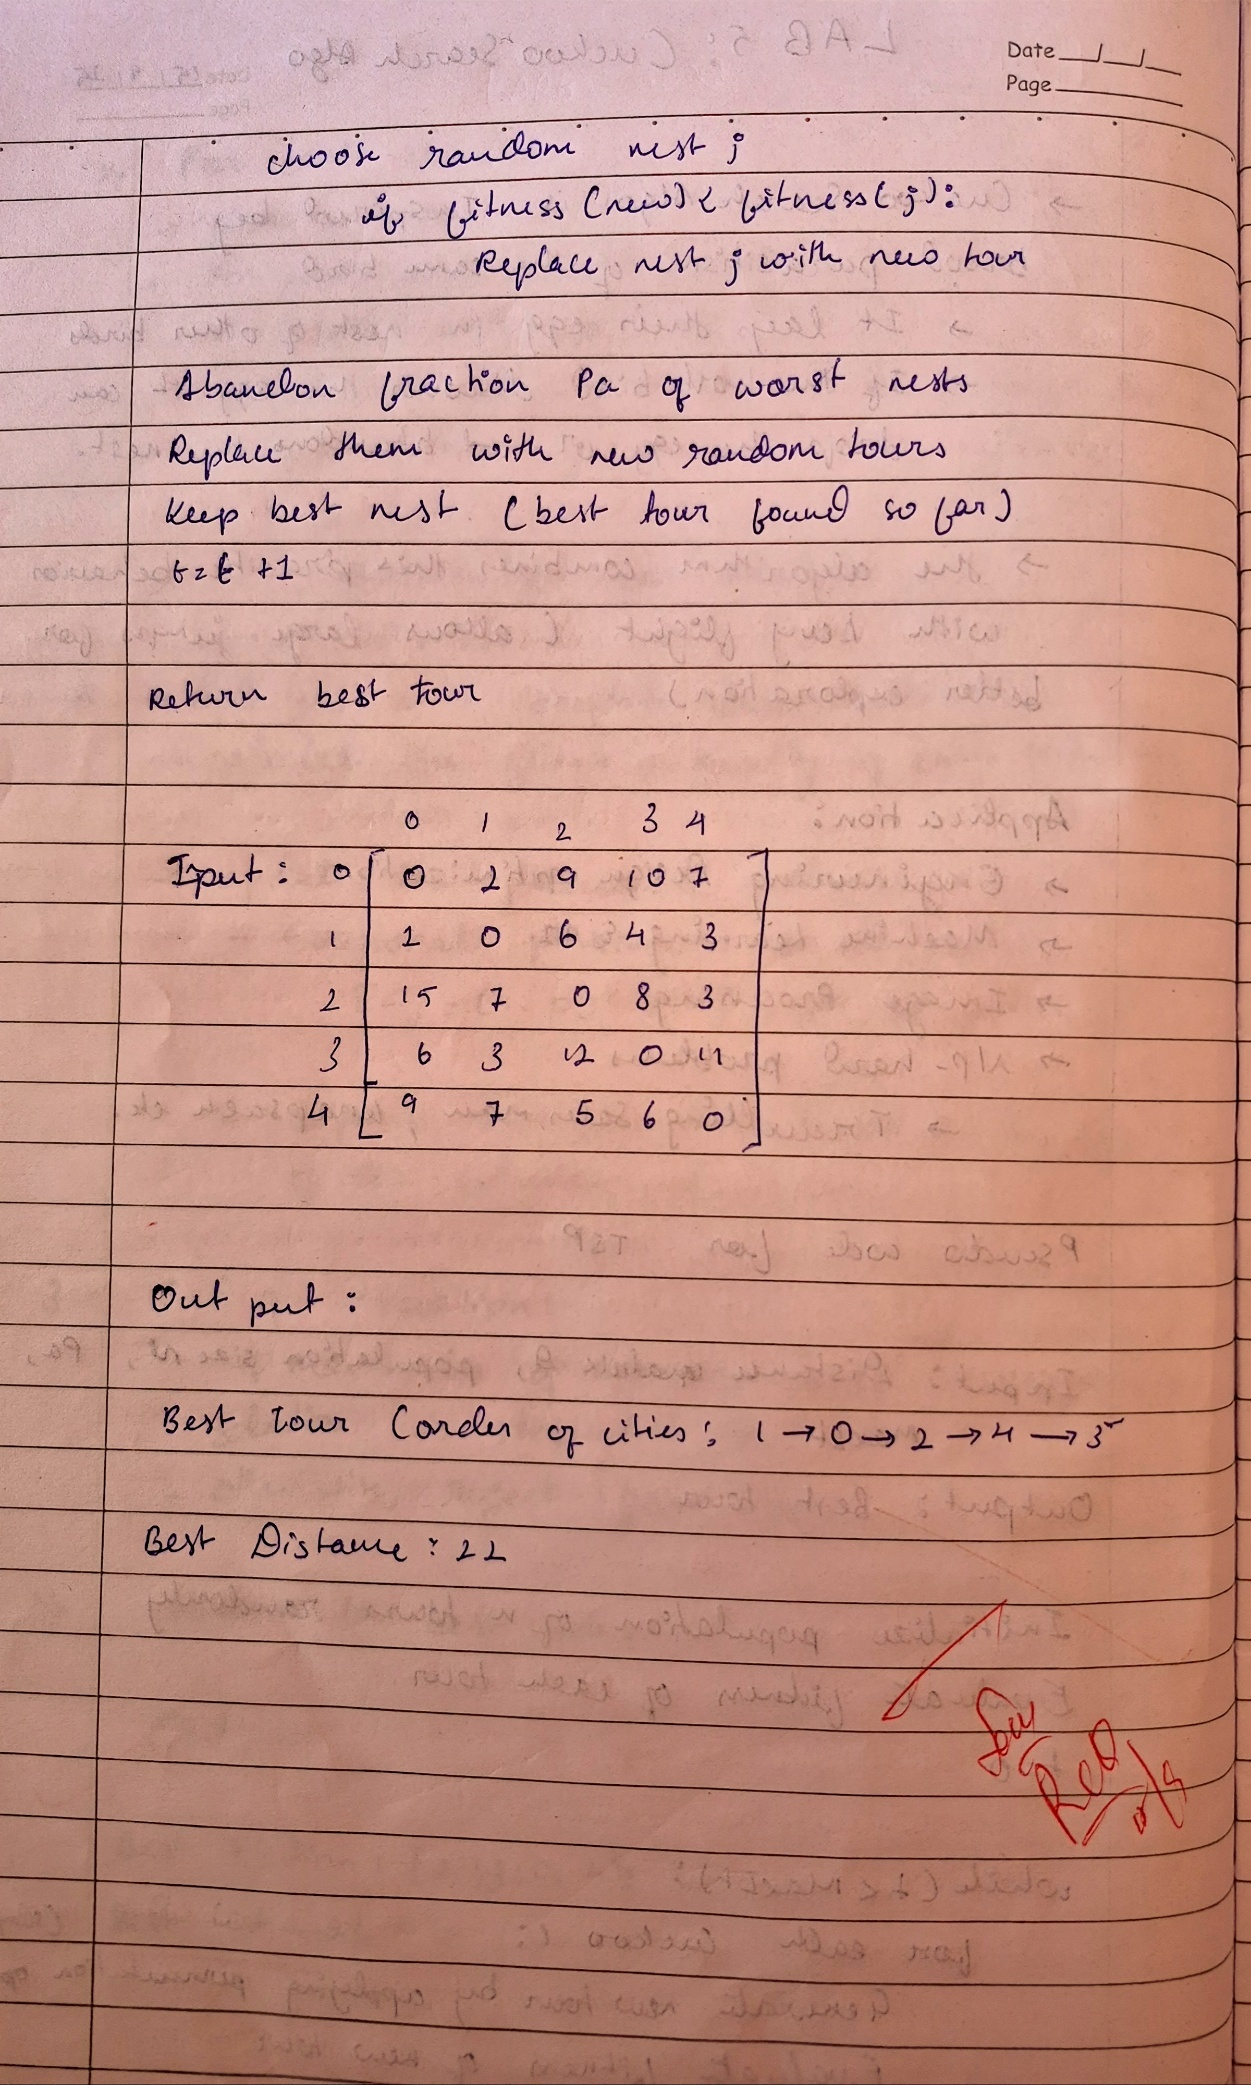 Date
Page
choose random nest j
if fitness (new) < fitness(j):
Replace nest j with new tour
Abandon fraction Pa of worst nests
Replace them with new random tours
Keep best nest (best tour found so far)
t = t +1
Return best tour
0 1 2 3 4
Input : 0 0 2 9 10 7
1 2 0 6 4 3
2 15 7 0 8 3
3 6 3 12 0 11
4 9 7 5 6 0
Output :
Best tour (order of cities: 1 → 0 → 2 → 4 → 3
Best Distance : 22